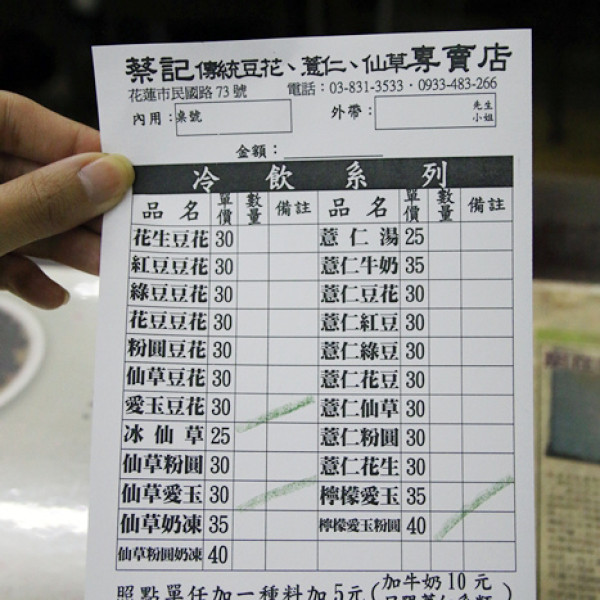 蔡記傳統豆花、薏仁、仙草專賣店
花蓮市民國路73號 電話：03-831-3533．0933-483-266
內用：桌號 外帶： 先生 小姐
金額：
冷飲系列
品名 單價 數量 備註 品名 單價 數量 備註
花生豆花 30 薏仁湯 25
紅豆豆花 30 薏仁牛奶 35
綠豆豆花 30 薏仁豆花 30
花豆豆花 30 薏仁紅豆 30
粉圓豆花 30 薏仁綠豆 30
仙草豆花 30 薏仁花豆 30
愛玉豆花 30 薏仁仙草 30
冰仙草 25 薏仁粉圓 30
仙草粉圓 30 薏仁花生 30
仙草愛玉 30 檸檬愛玉 35
仙草奶凍 35 檸檬愛玉粉圓 40
仙草粉圓奶凍 40
照點單任加一種料加5元(加牛奶10元